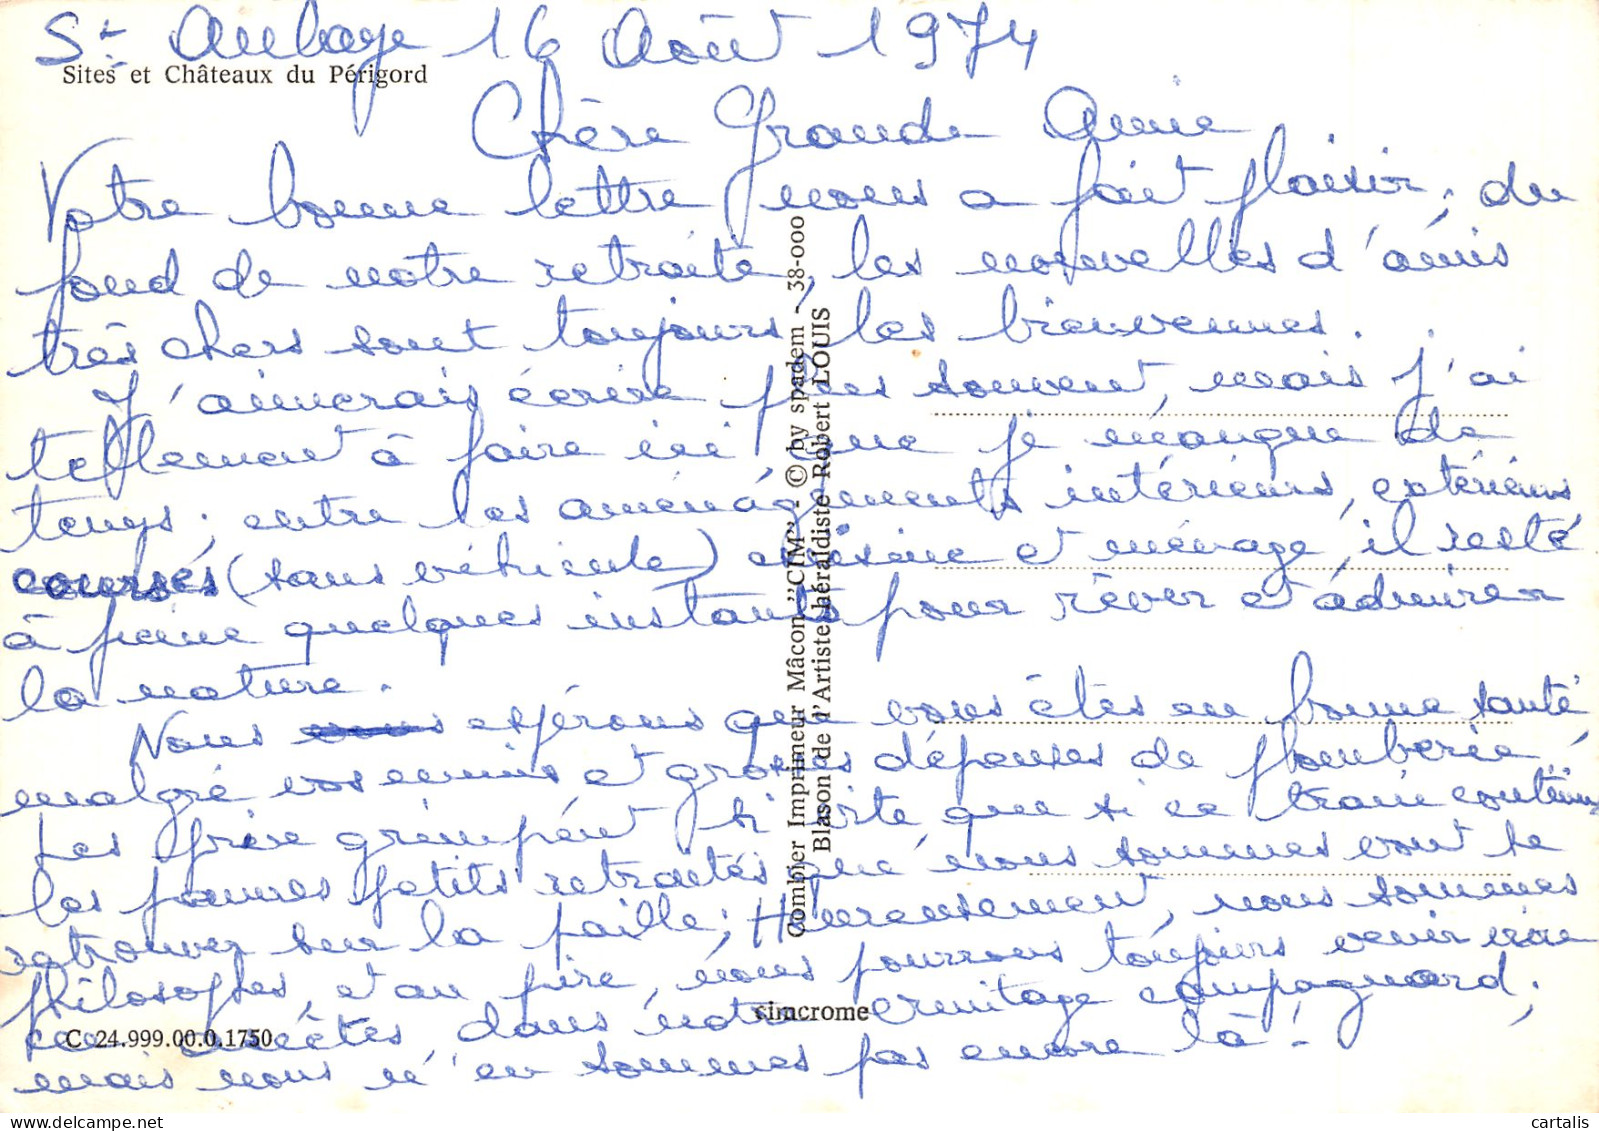 St Aulaye 16 Août 1974
Sites et Châteaux du Périgord
Chère Grande Amie
Votre bonne lettre nous a fait plaisir, du
fond de notre retraite, les nouvelles d'amis
très chers sont toujours les bienvenues.
J'aimerais écrire plus souvent, mais j'ai
tellement à faire ici que je manque de
temps; entre les aménagements intérieurs, extérieurs
courses (sans véhicule) cuisine et ménage, il reste
à peine quelques instants pour rêver et admirer
la nature.
Nous espérons que vous êtes en bonne santé
malgré vos ennuis et grosses dépenses de plomberie.
Les prix grimpent si vite que si ce train continue
les pauvres petits retraités que nous sommes vont se
retrouver sur la paille; Heureusement, nous sommes
philosophes, et au pire, nous pourrons toujours venir vivre
en dans notre ermitage campagnard,
mais nous n'en sommes pas encore là!
Combier Imprimeur Mâcon "CIM" - © by spadem - 38-000
Blason de l'Artiste héraldiste Robert LOUIS
cimcrome
C 24.999.00.0.1750
cartalis